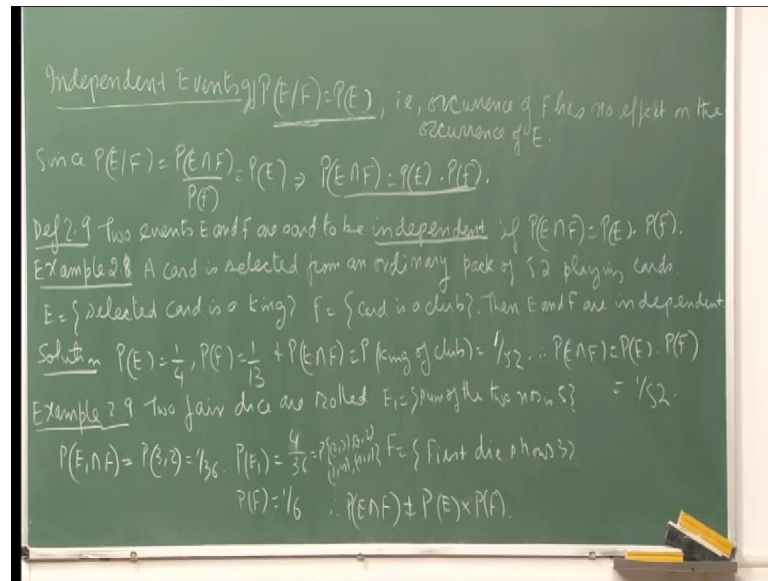 Independent Events if P(E/F)=P(E), ie, occurrence of F has no effect on the
occurrence of E.
Since P(E/F) = P(E∩F)/P(F) = P(E) ⇒ P(E∩F) = P(E) . P(F).
Def 2.9 Two events E and F are said to be independent if P(E∩F)=P(E). P(F).
Example 2.8 A card is selected from an ordinary pack of 52 playing cards.
E = {selected card is a king} F = {card is a club}. Then E and F are independent.
Solution P(E) = 1/4, P(F) = 1/13 + P(E∩F) = P(king of club) = 1/52 ∴ P(E∩F)=P(E). P(F)
= 1/52.
Example 2.9 Two fair dice are rolled E₁ = {sum of the two nos is 5}
P(E₁∩F) = P(3,2) = 1/36. P(E₁) = 4/36 = P{(2,3),(3,2)
(1,4),(4,1)} F = {First die shows 3}
P(F) = 1/6 ∴ P(E∩F) ≠ P(E) × P(F).